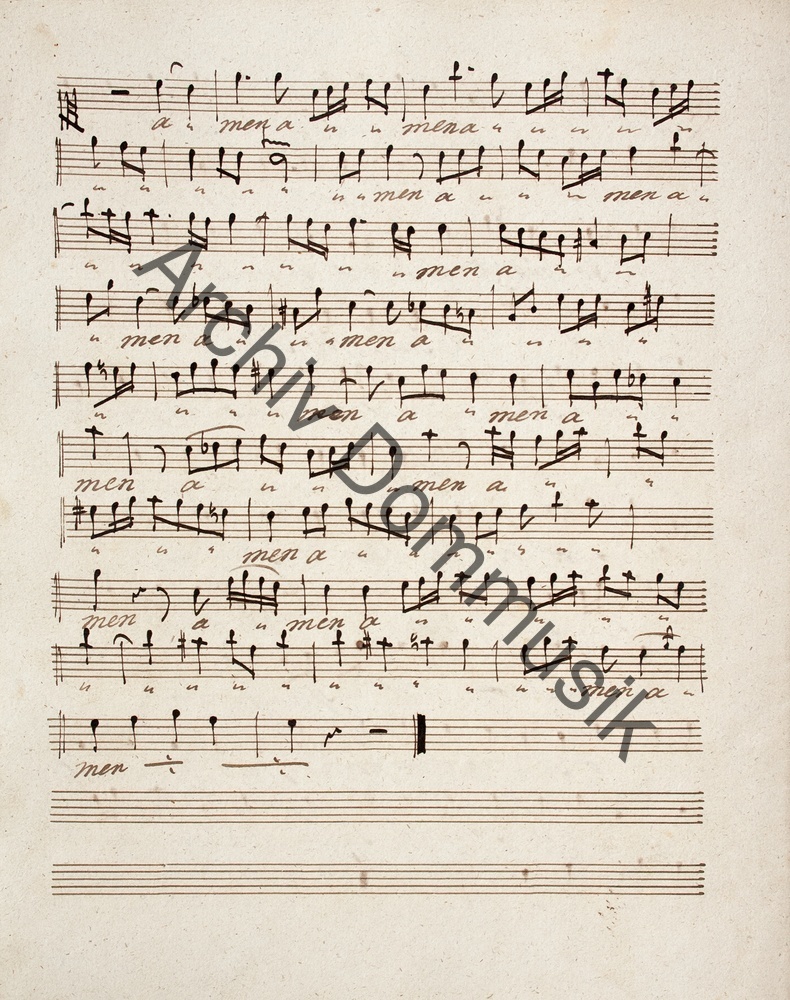 a " men a " " men a " " " " "
" " " " " " " men a " " " men a "
" " " " " " " men a " "
" men a " " " men a " " " "
" " " " men a " men a " "
men a " " " men a " " "
" " " men a " " " " "
men a " men a " " " " " "
" " " " " " " " " " " " men a "
men ÷ ÷
Archiv Dommusik